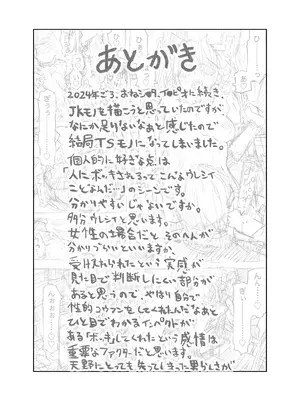 あとがき
2024年ごろ、おねショタ、TSロピオに続き、
JKモノを描こうと思っていたのですが
なにか足りないなあと感じたので
結局TSモノになってしまいました。
個人的に好きな点は
「人にボッキされるってこんなウレシイ
ことなんだ…」のシーンです。
分かりやすいじゃないですか。
多分ウレシイと思います。
女性の場合だとそのへんが
分かりづらいといいますか、
受け入れられたという実感が
見た目で判断しにくい部分が
あると思うので、やはり自分で
性的コウフンをしてくれたんだなあと
ひと目でわかるインパクトが
ある「ボッキ」してくれたという感情は
重要なファクターだと思います。
天野にとっても、失ってしまった男らしさが